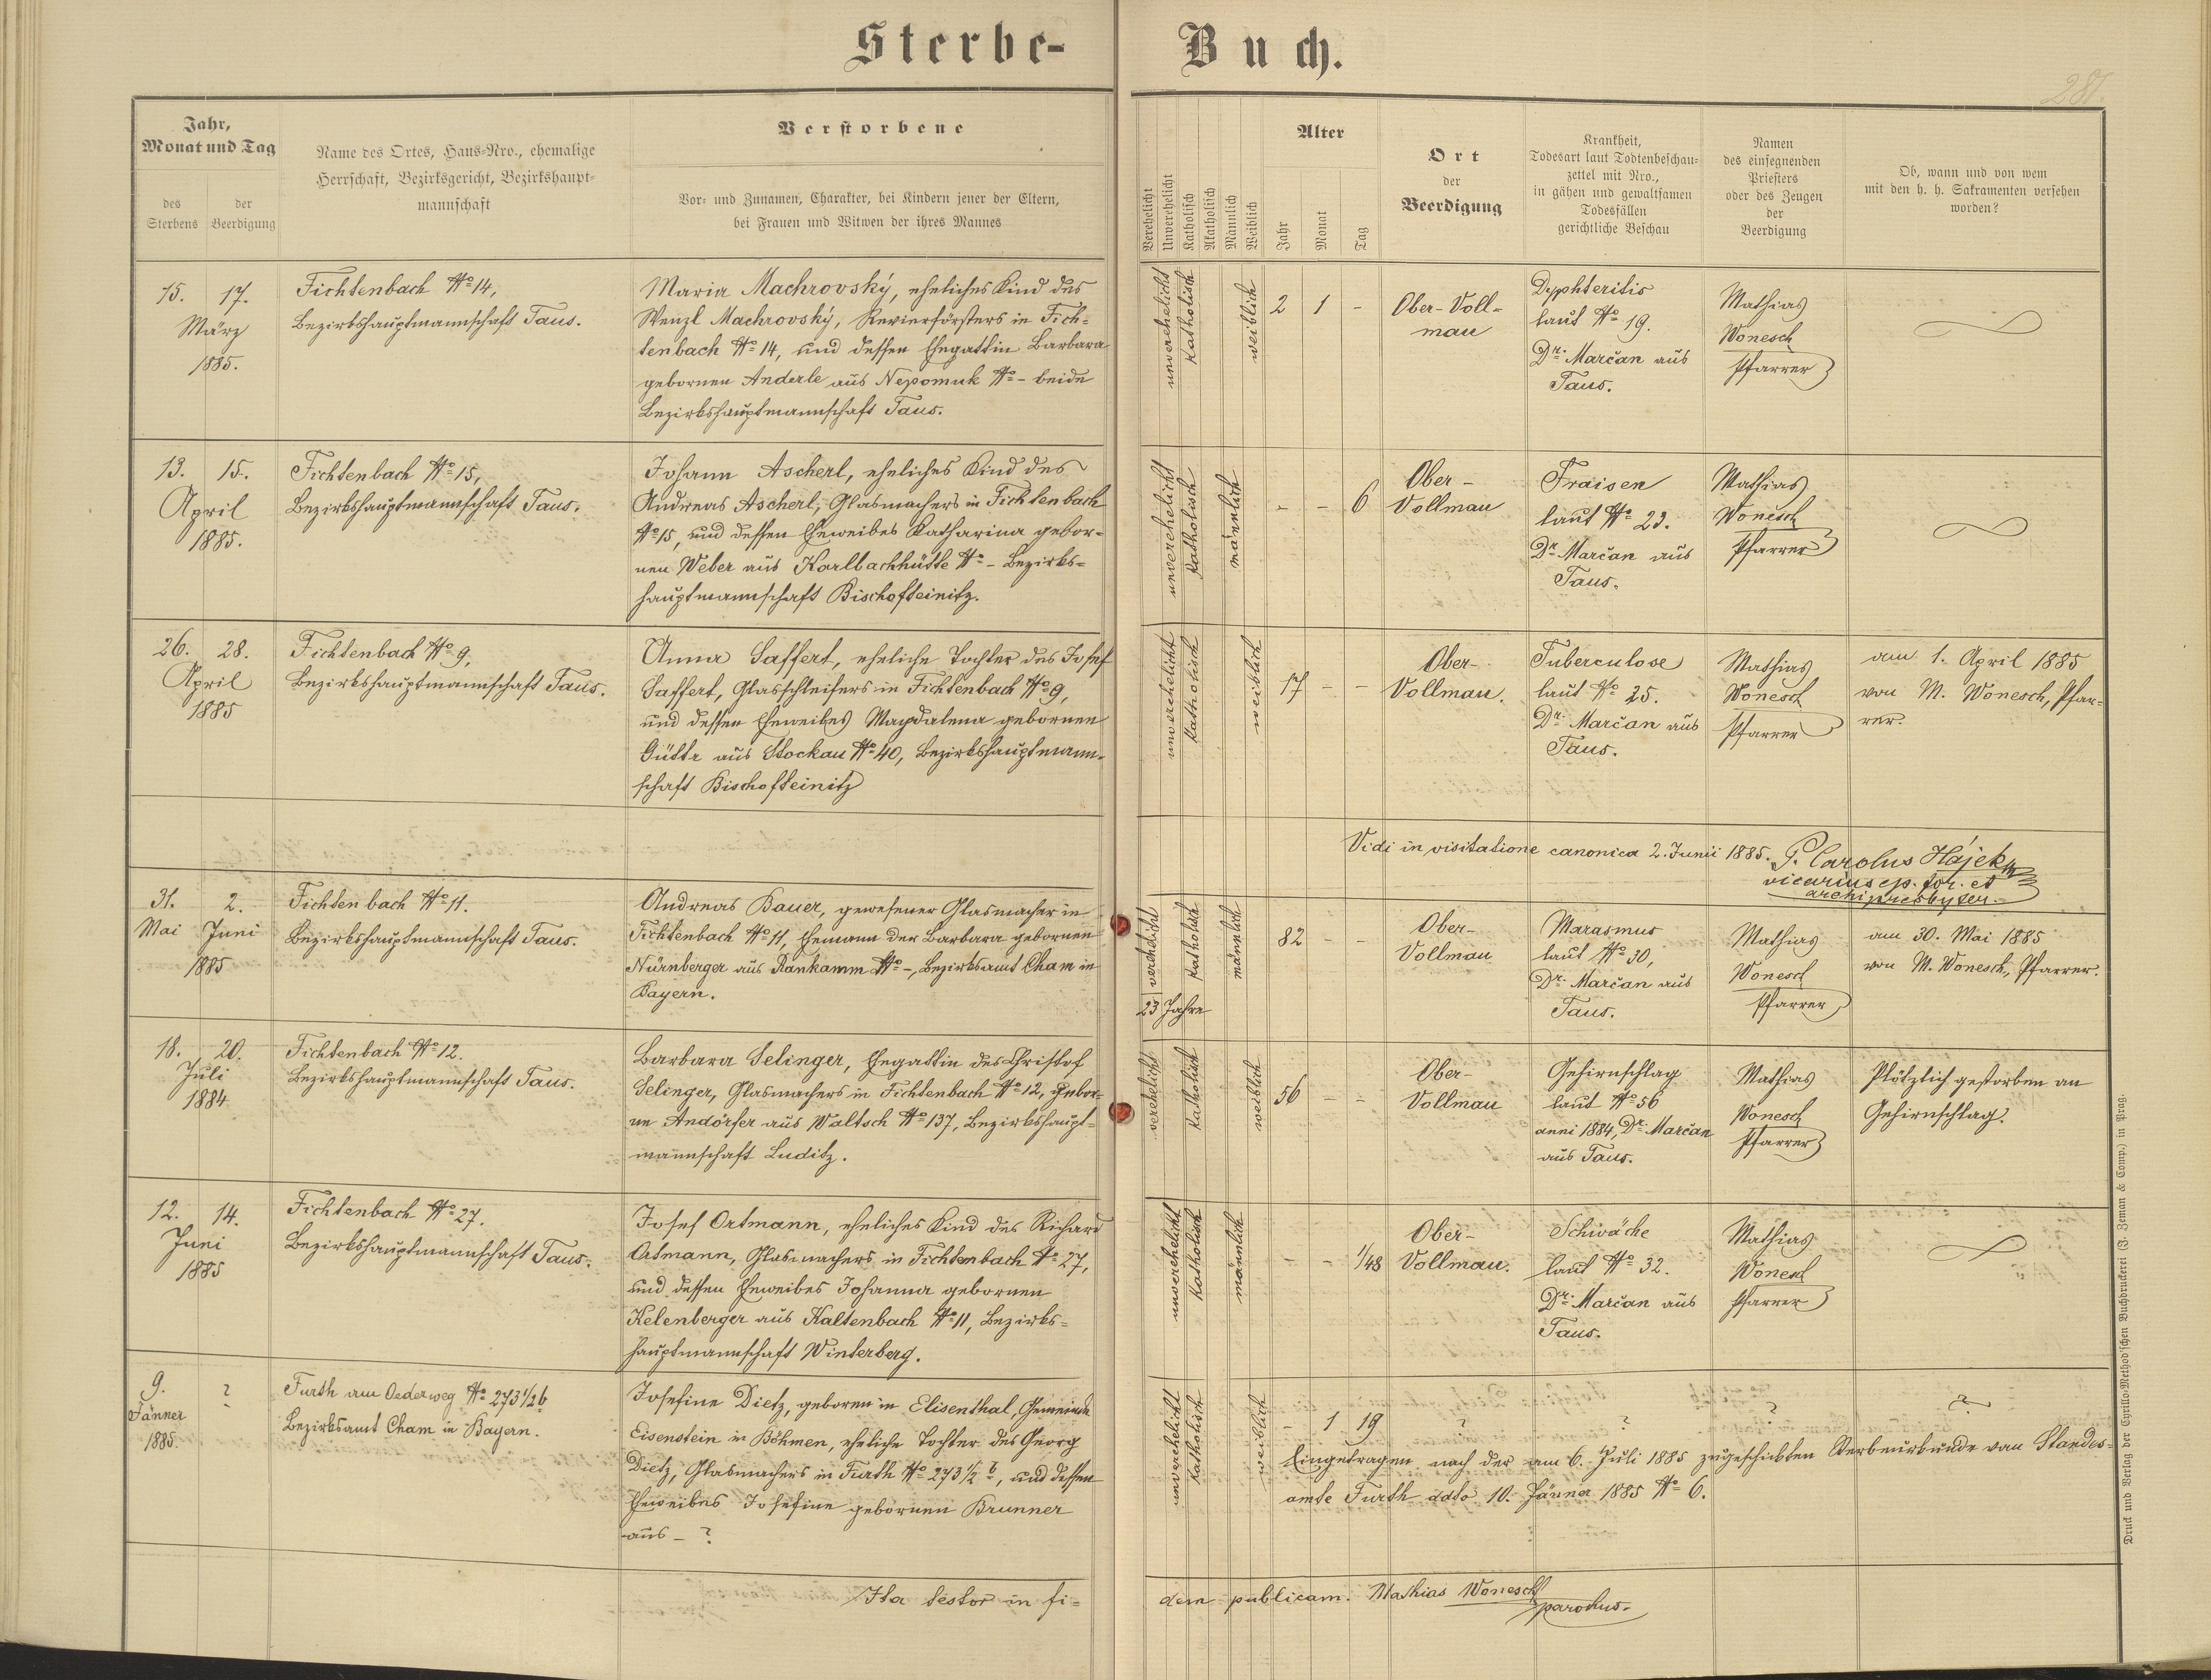 Sterbe-Buch.
281.
Jahr,
Monat und Tag
des Sterbens
der Beerdigung
Name des Ortes, Haus-Nro., ehemalige
Herrschaft, Bezirksgericht, Bezirkshaupt-
mannschaft
Verstorbene
Vor- und Zunamen, Charakter, bei Kindern jener der Eltern,
bei Frauen und Witwen der ihres Mannes
Verehelicht
Unverehelicht
Katholisch
Akatholisch
Männlich
Weiblich
Alter
Jahr
Monat
Tag
Ort
der
Beerdigung
Krankheit,
Todesart laut Todtenbeschau-
zettel mit Nro.,
in gähen und gewaltsamen
Todesfällen
gerichtliche Beschau
Namen
des einsegnenden
Priesters
oder des Zeugen
der
Beerdigung
Ob, wann und von wem
mit den h. h. Sakramenten versehen
worden?
15. 17.
März
1885.
Fichtenbach No 14,
Bezirkshauptmannschaft Taus.
Maria Machrovský, eheliches Kind des
Wenzl Machrovský, Revierförsters in Fich-
tenbach No 14, und dessen Ehegattin Barbara
gebornen Anderle aus Nepomuk No - beide
Bezirkshauptmannschaft Taus.
unverehelicht
Katholisch
weiblich
2 1 -
Ober-Voll-
mau
Dyphteritis
laut No 19.
Dr. Marčan aus
Taus.
Mathias
Wonesch
Pfarrer
13. 15.
April
1885.
Fichtenbach No 15,
Bezirkshauptmannschaft Taus.
Johann Ascherl, eheliches Kind des
Andreas Ascherl, Glasmachers in Fichtenbach
No 15, und dessen Eheweibes Katharina gebor-
nen Weber aus Karlbachhütte No - Bezirks-
hauptmannschaft Bischofteinitz.
unverehelicht
Katholisch
männlich
- - 6
Ober-
Vollmau
Fraisen
laut No 23.
Dr. Marčan aus
Taus.
Mathias
Wonesch
Pfarrer
26. 28.
April
1885
Fichtenbach No 9,
Bezirkshauptmannschaft Taus.
Anna Saffert, eheliche Tochter des Josef
Saffert, Glasschleifers in Fichtenbach No 9,
und dessen Eheweibes Magdalena gebornen
Güttr aus Stockau No 40, Bezirkshauptmann-
schaft Bischofteinitz
unverehelicht
Katholisch
weiblich
17 - -
Ober-
Vollmau.
Tuberculose
laut No 25.
Dr. Marčan aus
Taus.
Mathias
Wonesch
Pfarrer
am 1. April 1885
von M. Wonesch, Pfar-
rer.
Vidi in visitatione canonica 2. Junii 1885. P. Carolus Hájek
vicarius ep. for. et
archipresbyter.
31. 2.
Mai Juni
1885
Fichtenbach No 11.
Bezirkshauptmannschaft Taus.
Andreas Bauer, gewesener Glasmacher in
Fichtenbach No 11, Ehemann der Barbara gebornen
Nürnberger aus Rankamm No -, Bezirksamt Cham in
Bayern.
verehelicht
23 Jahre
Katholisch
männlich
82 - -
Ober-
Vollmau
Marasmus
laut No 30,
Dr. Marčan aus
Taus.
Mathias
Wonesch
Pfarrer
am 30. Mai 1885
von M. Wonesch, Pfarrer.
18. 20.
Juli
1884
Fichtenbach No 12.
Bezirkshauptmannschaft Taus.
Barbara Selinger, Ehegattin des Christof
Selinger, Glasmachers in Fichtenbach No 12, gebor-
ne Andörfer aus Waltsch No 137, Bezirkshaupt-
mannschaft Luditz.
verehelicht
Katholisch
weiblich
56 - -
Ober-
Vollmau
Gehirnschlag
laut No 56
anni 1884, Dr. Marčan
aus Taus.
Mathias
Wonesch
Pfarrer
Plötzlich gestorben an
Gehirnschlag.
12. 14.
Juni
1885
Fichtenbach No 27.
Bezirkshauptmannschaft Taus.
Josef Ortmann, eheliches Kind des Richard
Ortmann, Glasmachers in Fichtenbach No 27,
und dessen Eheweibes Johanna gebornen
Kelenberger aus Kaltenbach No 11, Bezirks-
hauptmannschaft Winterberg.
unverehelicht
Katholisch
männlich
- - 1/48
Ober-
Vollmau.
Schwäche
laut No 32.
Dr. Marčan aus
Taus.
Mathias
Wonesch
Pfarrer
9. ?
Jänner
1885.
Furth am Oederweg No 273 1/2 b
Bezirksamt Cham in Bayern.
Josefine Dietz, geboren in Elisenthal, Gemeinde
Eisenstein in Böhmen, eheliche Tochter des Georg
Dietz, Glasmachers in Furth No 273 1/2 b, und dessen
Eheweibes Josefine gebornen Brunner
aus - ?
unverehelicht
Katholisch
weiblich
- 1 19
? ? ? ?
Eingetragen nach der am 6. Juli 1885 zugeschickten Sterbeurkunde vom Standes-
amte Furth ddto 10. Jänner 1885 No 6.
Ita testor in fi-
dem publicam. Mathias Wonesch
parochus.
Druck und Verlag der Cyrillo-Method'schen Buchdruckerei (J. Zeman & Comp.) in Prag.